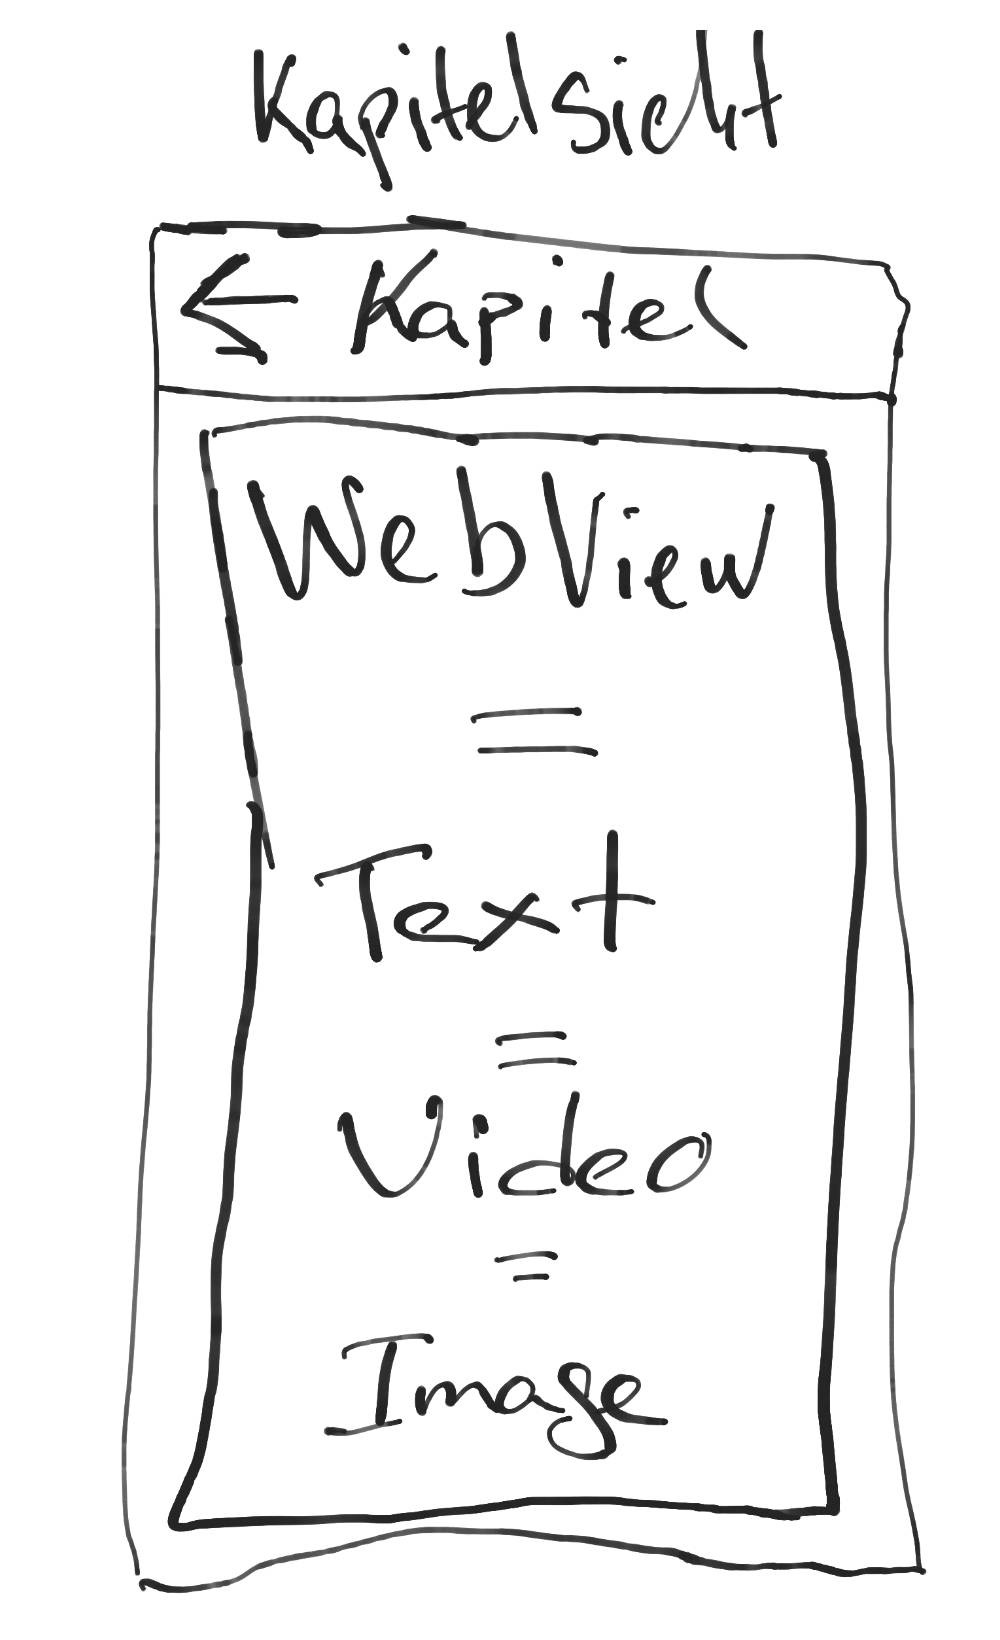 Kapitelsicht
← Kapitel
WebView
=
Text
=
Video
=
Image